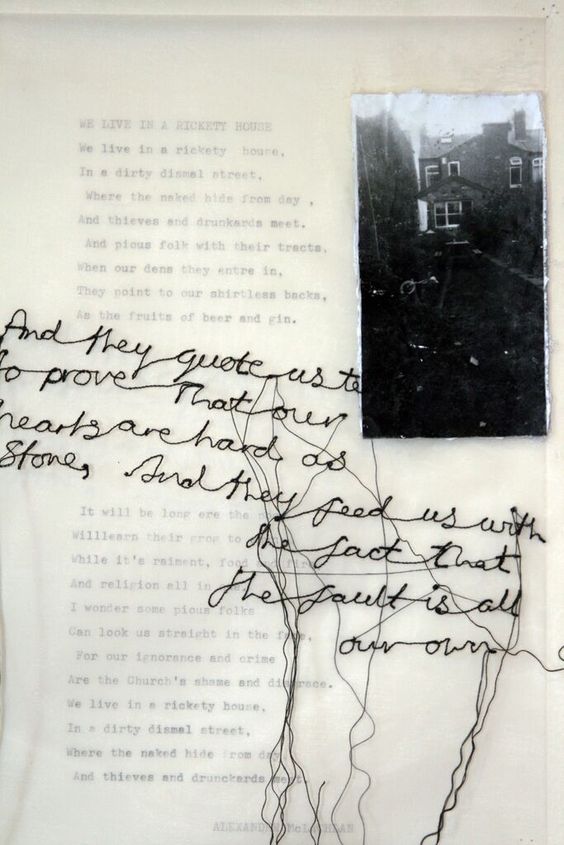 WE LIVE IN A RICKETY HOUSE
We live in a rickety house,
In a dirty dismal street,
Where the naked hide from day ,
And thieves and drunkards meet.
And pious folk with their tracts,
When our dens they entre in,
They point to our shirtless backs,
As the fruits of beer and gin.
And they quote us te
to prove That our
hearts are hard as
Stone, And they feed us with
the fact that
the fault is all
our own
It will be long ere the
Willlearn their grog to
While it's raiment, food and fire
And religion all in
I wonder some pious folks
Can look us straight in the face,
For our ignorance and crime
Are the Church's shame and disgrace.
We live in a rickety house,
In a dirty dismal street,
Where the naked hide from day
And thieves and drunckards meet.
ALEXANDER McLACHLAN